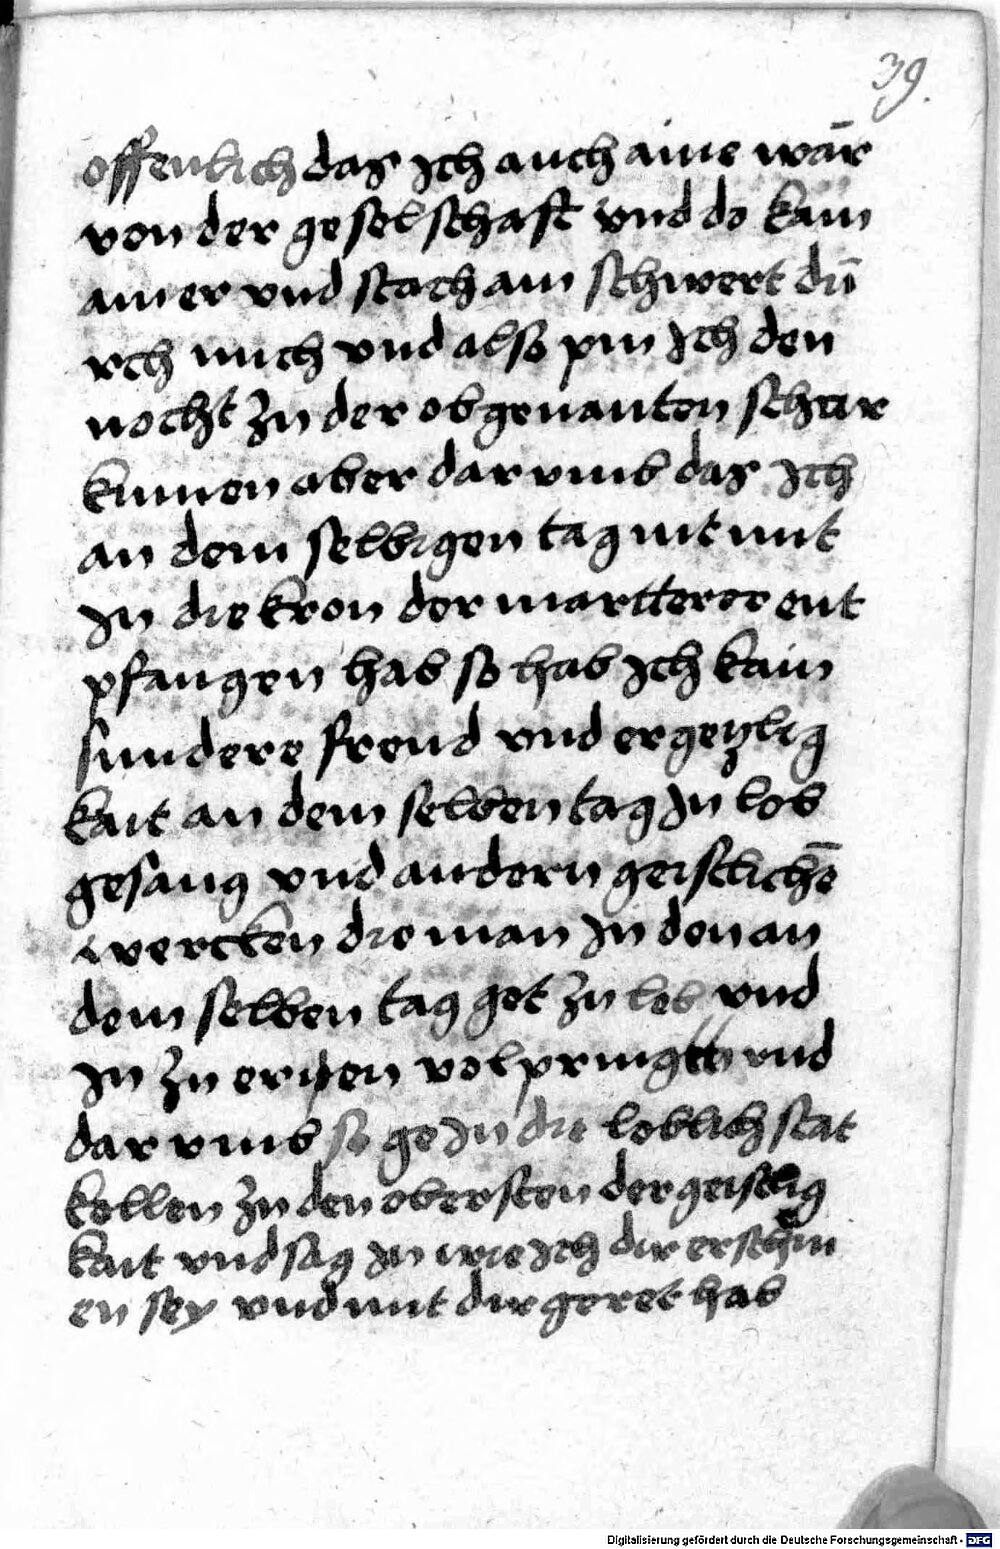 39.
offenlich das ich auch aine wār
von der geselschaft vnd do kam
ainer vnd stach ain schwert dū
rch mich vnd also pin Ich den
nocht zu der obgenanten schar
kumen aber darvmb das Ich
an dem selbigen tag nit mit
In die kron der martterer ent
pfangen hab so hab Ich kain
sundere freud vnd ergeczlig
kait an dem selben tag In lob
gesang vnd andern geistlichē
wercken die man In den an
dem selben tag got zu lob vnd
In zu eryen volpringtt vnd
darvmb so ge In die loblich stat
kollen zu den obersten der geistlig
kait vnd sag In wie Ich dir erschin
en sey vnd mit dir geret hab
Digitalisierung gefördert durch die Deutsche Forschungsgemeinschaft - DFG